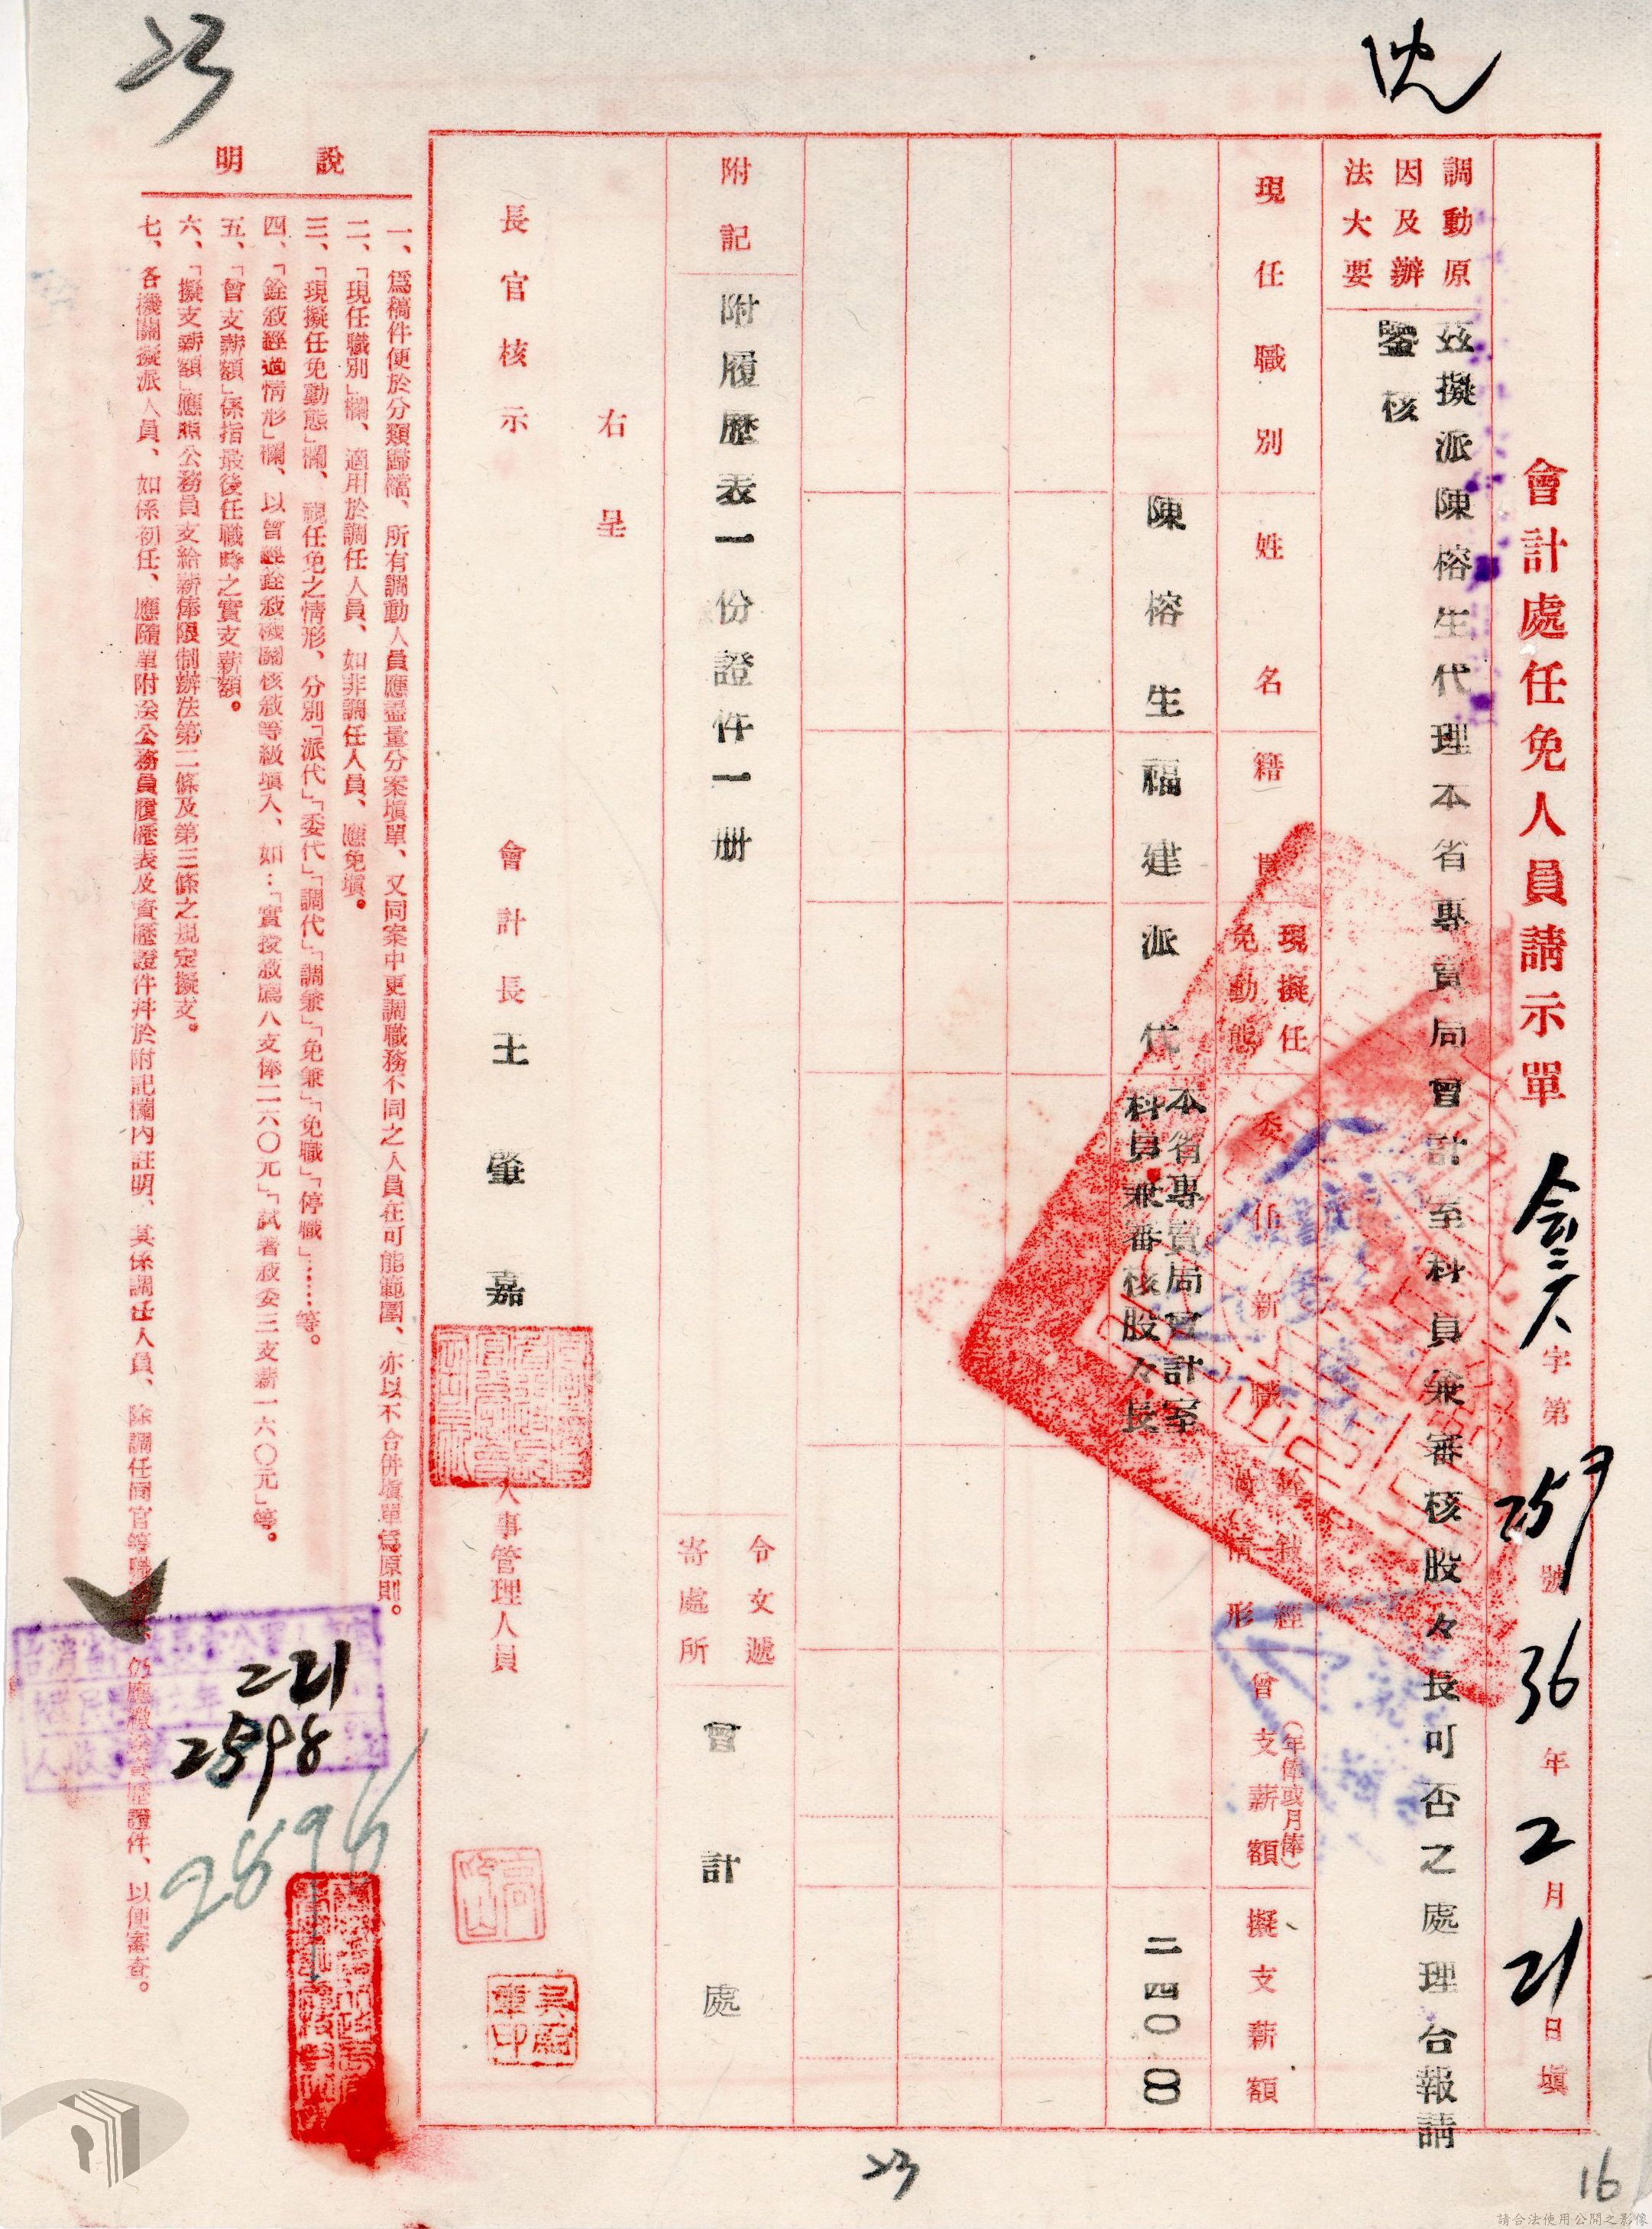 會計處任免人員請示單 會三六字第259號 36年2月21日填
調動原因及辦法大要
茲擬派陳榕生代理本省專賣局會計室科員兼審核股々長可否之處理合報請
鑒核
現任職別 姓名 籍貫 現擬任免動態 委任新職 銓敍經過情形 曾支薪額(年俸或月俸) 擬支薪額
陳榕生 福建 派代 本省專賣局會計室科員兼審核股々長 二四〇·〇〇
附記 附履歷表一份證件一册 令文遞寄處所 會計處
右呈
長官核示 會計長 王肇嘉 人事管理人員
吳蔚章印
說明
一、爲稿件便於分類歸檔、所有調動人員應盡量分案塡單、又同案中更調職務不同之人員在可能範圍、亦以不合併塡單爲原則。
二、「現任職別」欄、適用於調任人員、如非調任人員、應免塡。
三、「現擬任免動態」欄、視任免之情形、分別「派代」「委代」「調代」「調兼」「免兼」「免職」「停職」……等。
四、「銓敍經過情形」欄、以曾經銓敍機關核敍等級塡入、如：「實授敍薦八支俸二六〇元」「試署敍委三支薪一六〇元」等。
五、「曾支薪額」係指最後任職時之實支薪額。
六、「擬支薪額」應照公務員支給薪俸限制辦法第二條及第三條之規定擬支。
七、各機關擬派人員、如係初任、應隨單附送公務員履歷表及資歷證件幷於附記欄內註明、其係調任人員、除調任同官等職 仍應繳 資歷證件、以便審查。
221
2598
2896
23
23
16
請合法使用公開之影像